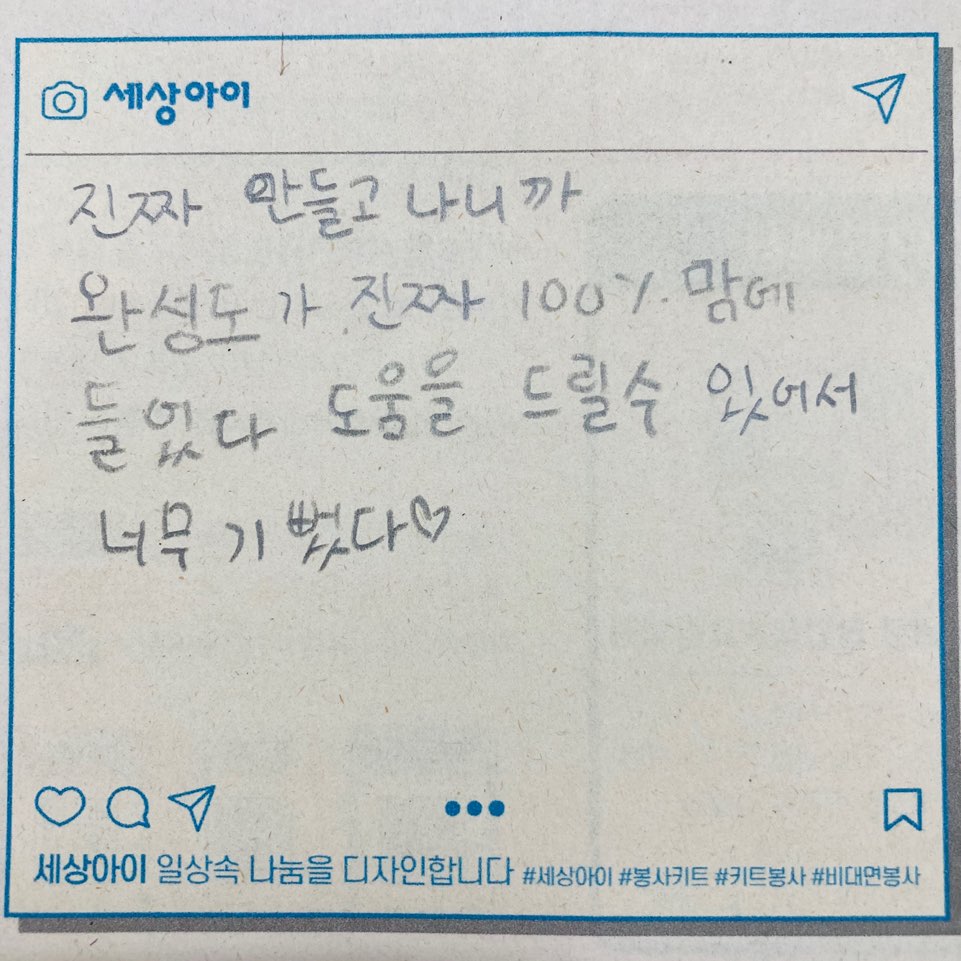 세상아이
진짜 만들고 나니까
완성도가 진짜 100% 맘에
들었다 도움을 드릴수 있어서
너무 기뻤다♡
세상아이 일상속 나눔을 디자인합니다 #세상아이 #봉사키트 #키트봉사 #비대면봉사